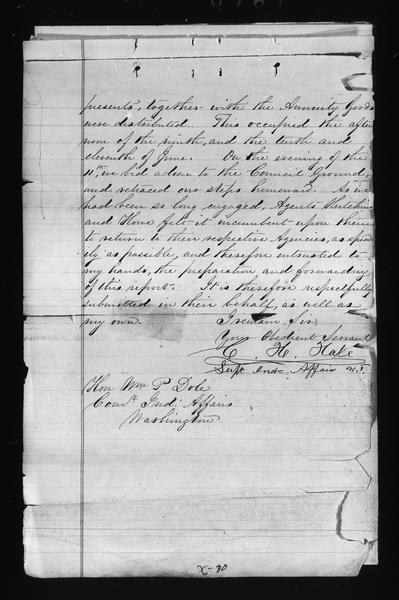 presents, together with the Annuity Goods
were distributed. This occupied the after
noon of the ninth, and the tenth and
eleventh of June. On the evening of the
11th, we bid adieu to the Council Ground,
and retraced our steps homeward. As we
had been so long engaged, Agents Hutchins
and Howe felt it incumbent upon them
to return to their respective Agencies, as speed
ily as possible, and therefore entrusted to
my hands, the preparation and forwarding
of this report. It is therefore respectfully
submitted in their behalf, as well as
my own.
I remain Sir,
Your Obedient Servant
C. H. Hale
Supt. Ind. Affairs W.T.
Hon Wm P. Dole
Comr. Ind. Affairs
Washington
X-30